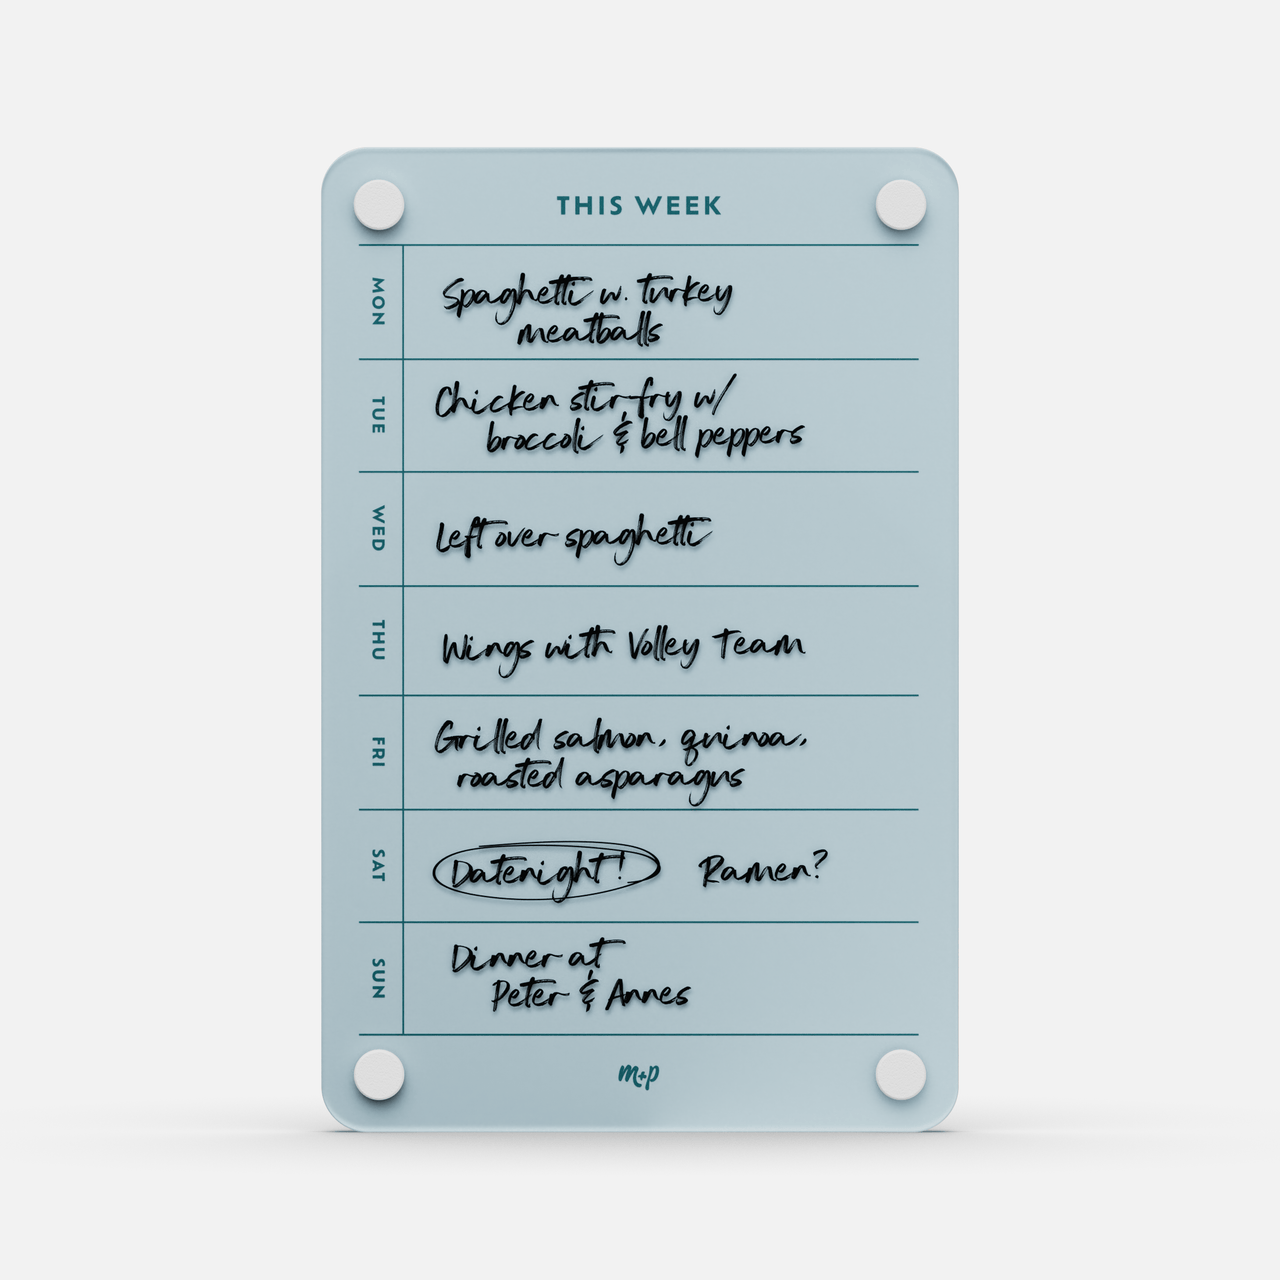 THIS WEEK
MON
Spaghetti w. turkey
meatballs
TUE
Chicken stir fry w/
broccoli & bell peppers
WED
Left over spaghetti
THU
Wings with Volley Team
FRI
Grilled salmon, quinoa,
roasted asparagus
SAT
Datenight! Ramen?
SUN
Dinner at
Peter & Annes
m+p